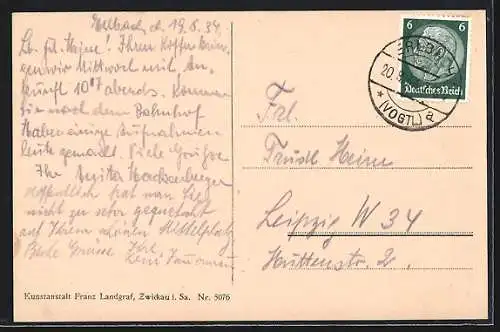 d. 19.8.34.
Lb. Frl. Heine! Ihren Koffer brin-
gen wir Mittwoch mit, An-
kunft 10⁰⁷ abends. Kommen
Sie nach dem Bahnhof
Haben einige Aufnahmen
heute gemacht. Viele Grüße
Ihr
Hoffentlich hat man Sie
nicht zu sehr gequetscht
auf Ihrem schönen Mittelplatz
Beste Grüsse Ihre
6 6
Deutsches Reich
20.8.
(VOGTL) a
Frl.
Trudl Heine
Leipzig W 34
Huttenstr. 2.
Kunstanstalt Franz Landgraf, Zwickau i. Sa. Nr. 5076